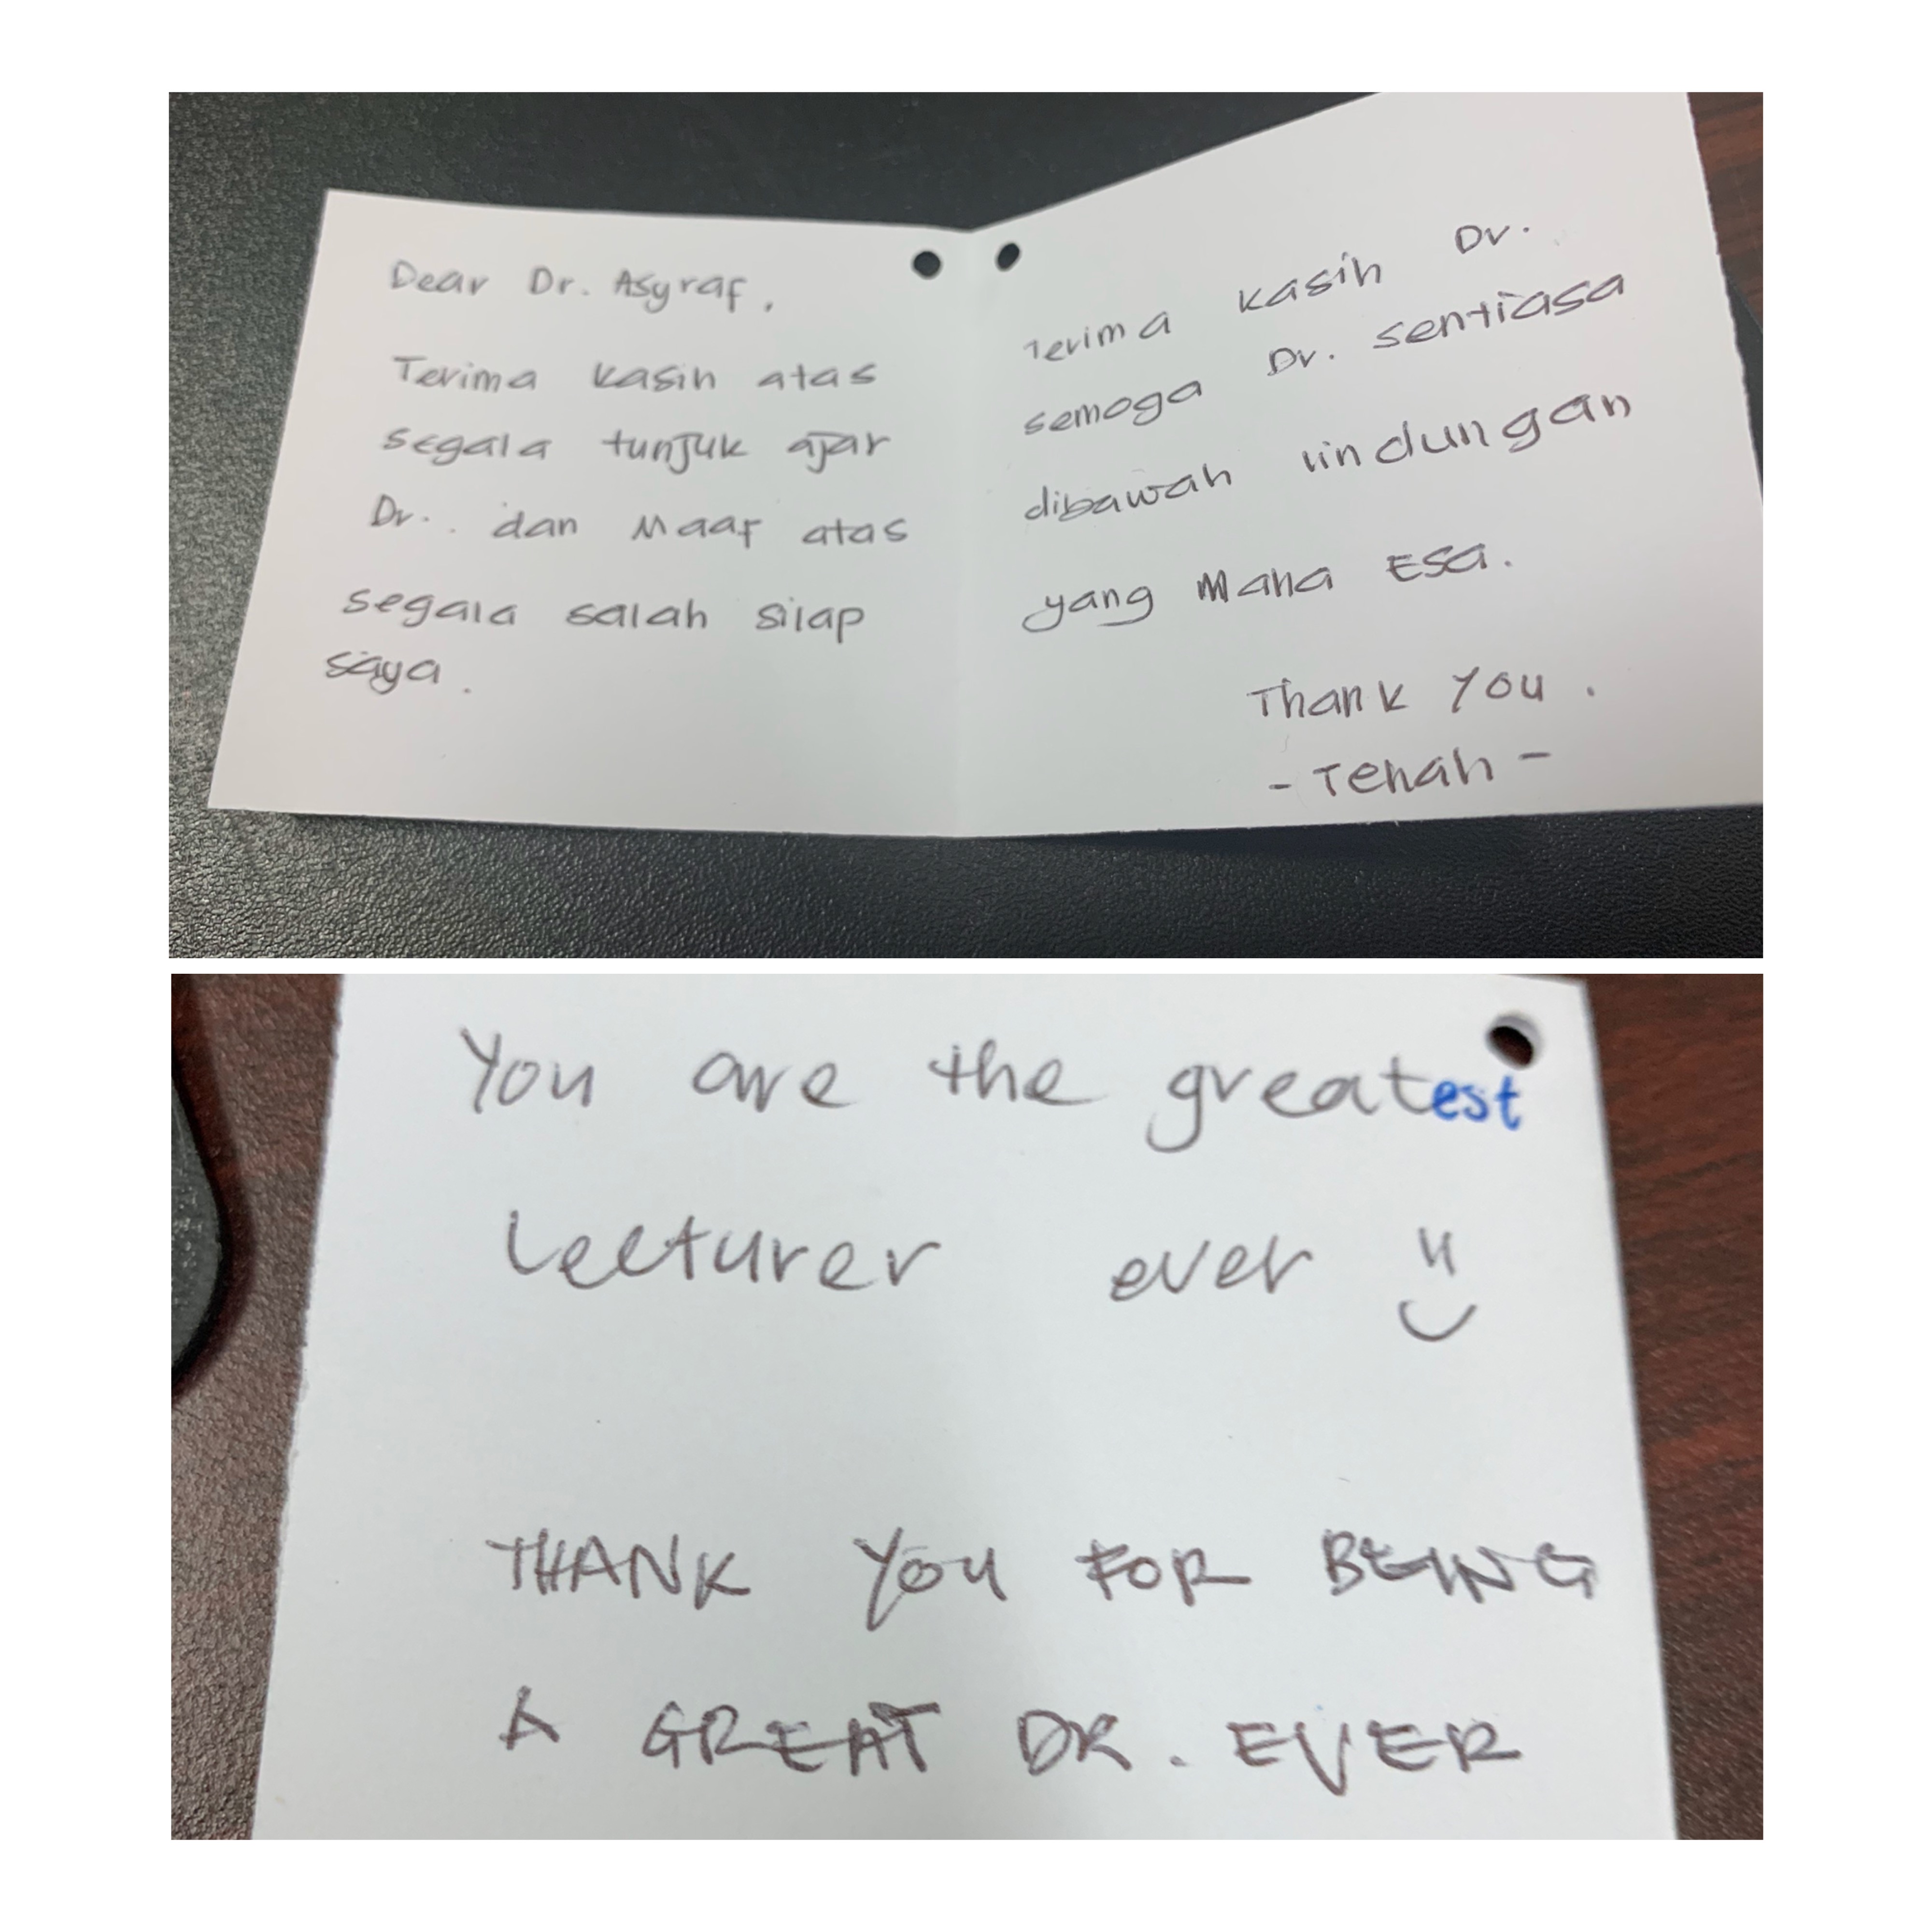 Dear Dr. Asyraf,
Terima kasih atas
segala tunjuk ajar
Dr.. dan Maaf atas
segala salah silap
saya.
Terima kasih Dr.
semoga Dr. sentiasa
dibawah lindungan
yang Maha Esa.
Thank You.
- Tehah -
You are the greatest
Lecturer ever
THANK YOU FOR BEING
A GREAT DR. EVER